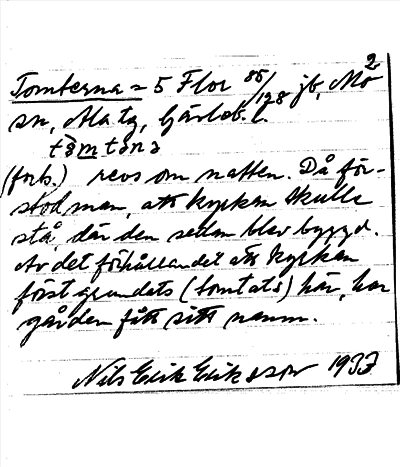 Tomterna = 5 Flor 85/128 jb, Mo 2
sn, Alata, Gävleb. l.
tömtənɔ
(forts.) revs om natten. Då för-
stod man, att kyrkan skulle
stå, där den sedan blev byggd.
Av det förhållandet att kyrkan
först grundats (tomtats) här, har
gården fått sitt namn.
Nils Erik Eriksson 1933